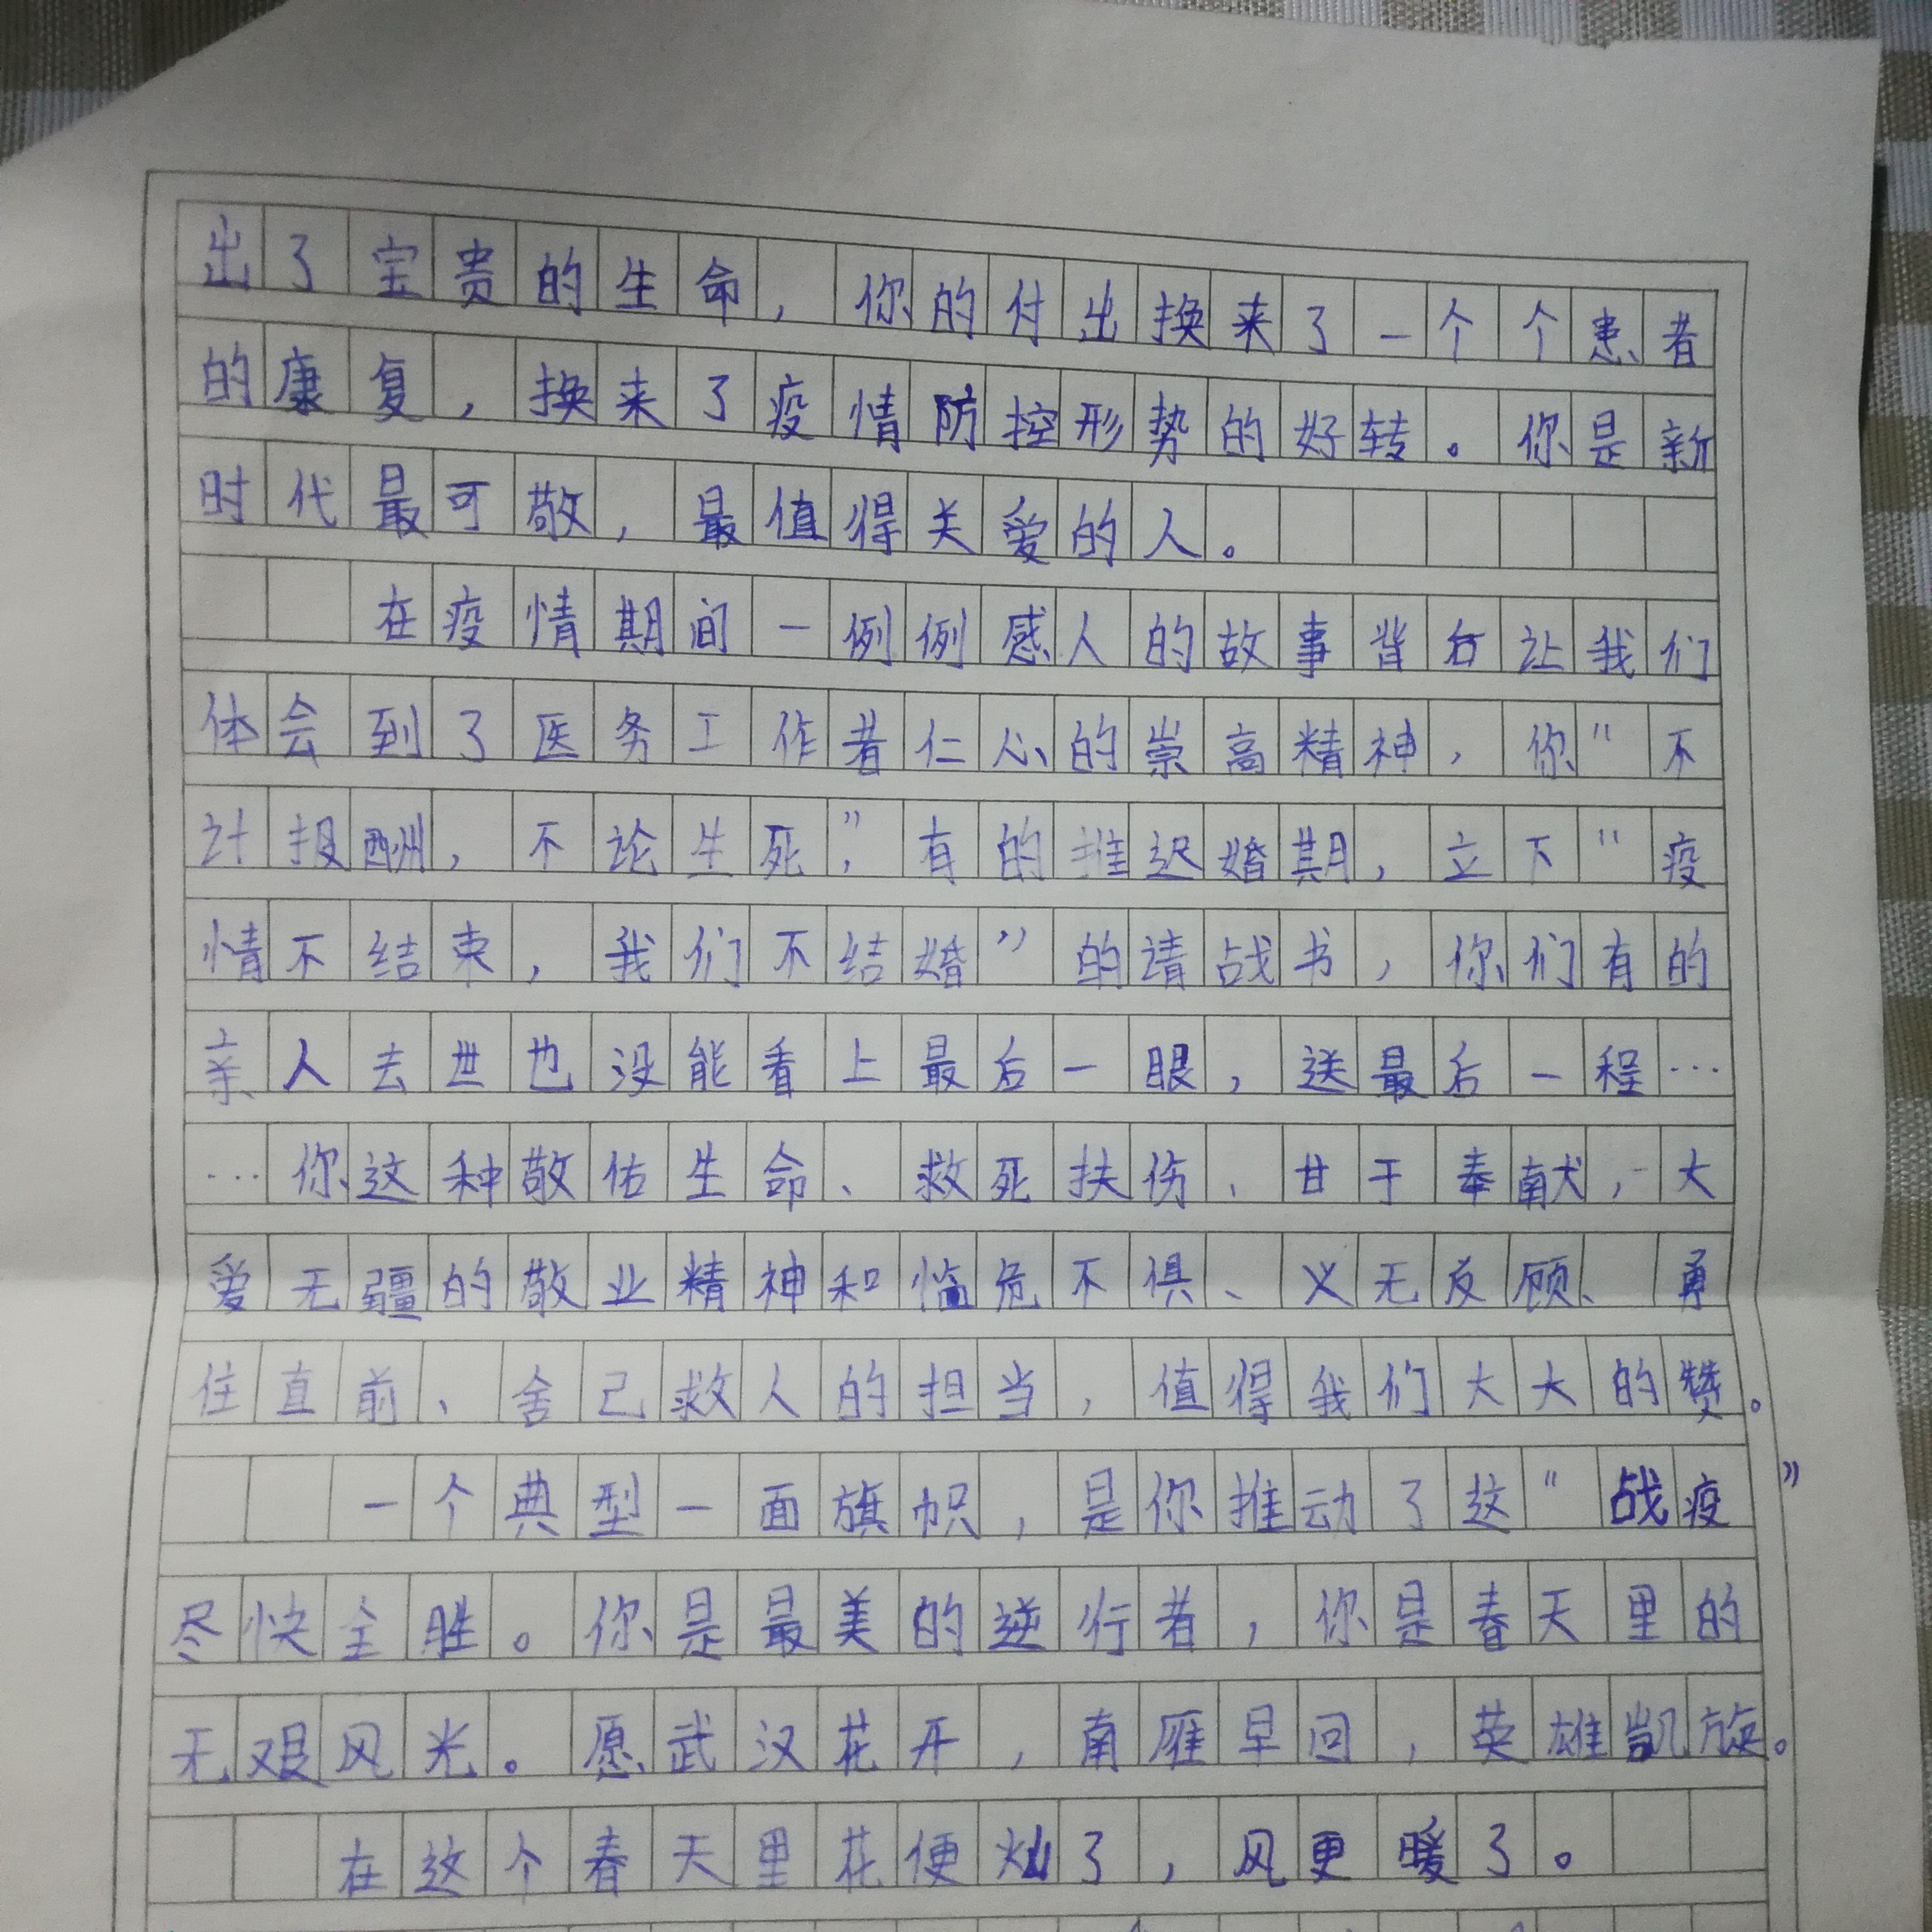 出了宝贵的生命，你的付出换来了一个个患者
的康复，换来了疫情防控形势的好转。你是新
时代最可敬，最值得关爱的人。
在疫情期间一例例感人的故事背后让我们
体会到了医务工作者仁心的崇高精神，你"不
计报酬，不论生死"，有的推迟婚期，立下"疫
情不结束，我们不结婚"的请战书，你们有的
亲人去世也没能看上最后一眼，送最后一程…
…你这种敬佑生命、救死扶伤、甘于奉献，大
爱无疆的敬业精神和临危不俱、义无反顾、勇
往直前、舍己救人的担当，值得我们大大的赞。
一个典型一面旗帜，是你推动了这"战疫"
尽快全胜。你是最美的逆行者，你是春天里的
无艰风光。愿武汉花开，南雁早回，英雄凯旋。
在这个春天里花便灿了，风更暖了。